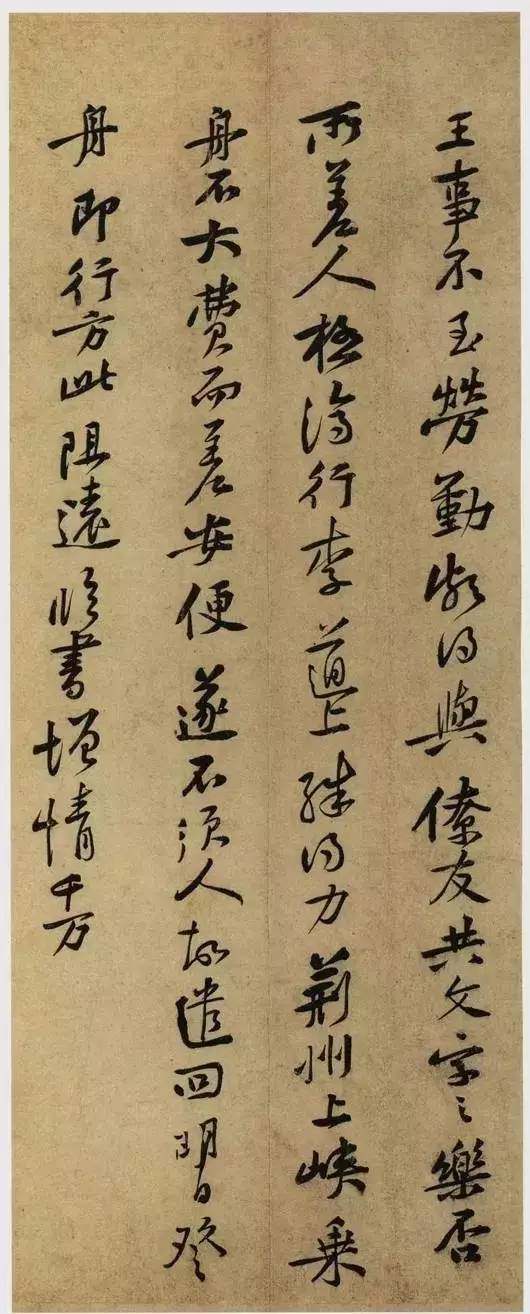 王事不至勞勤頗得與僚友共文字之樂否
所差人極濟行李道上殊得力荊州上峽乘
舟不大費而差安便遂不須人故遣回明日登
舟即行方此阻遠臨書增情千万